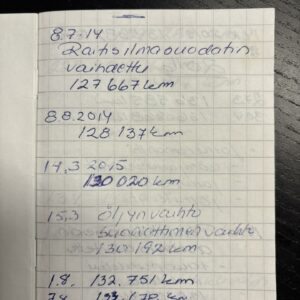 8.7.14
Raitisilmasuodatin
vaihdettu
127 667 km
8.8.2014
128 137 km
14.3 2015
130 020 km
15.3 Öljynvaihto
130 192 km
1.8. 132.751 km